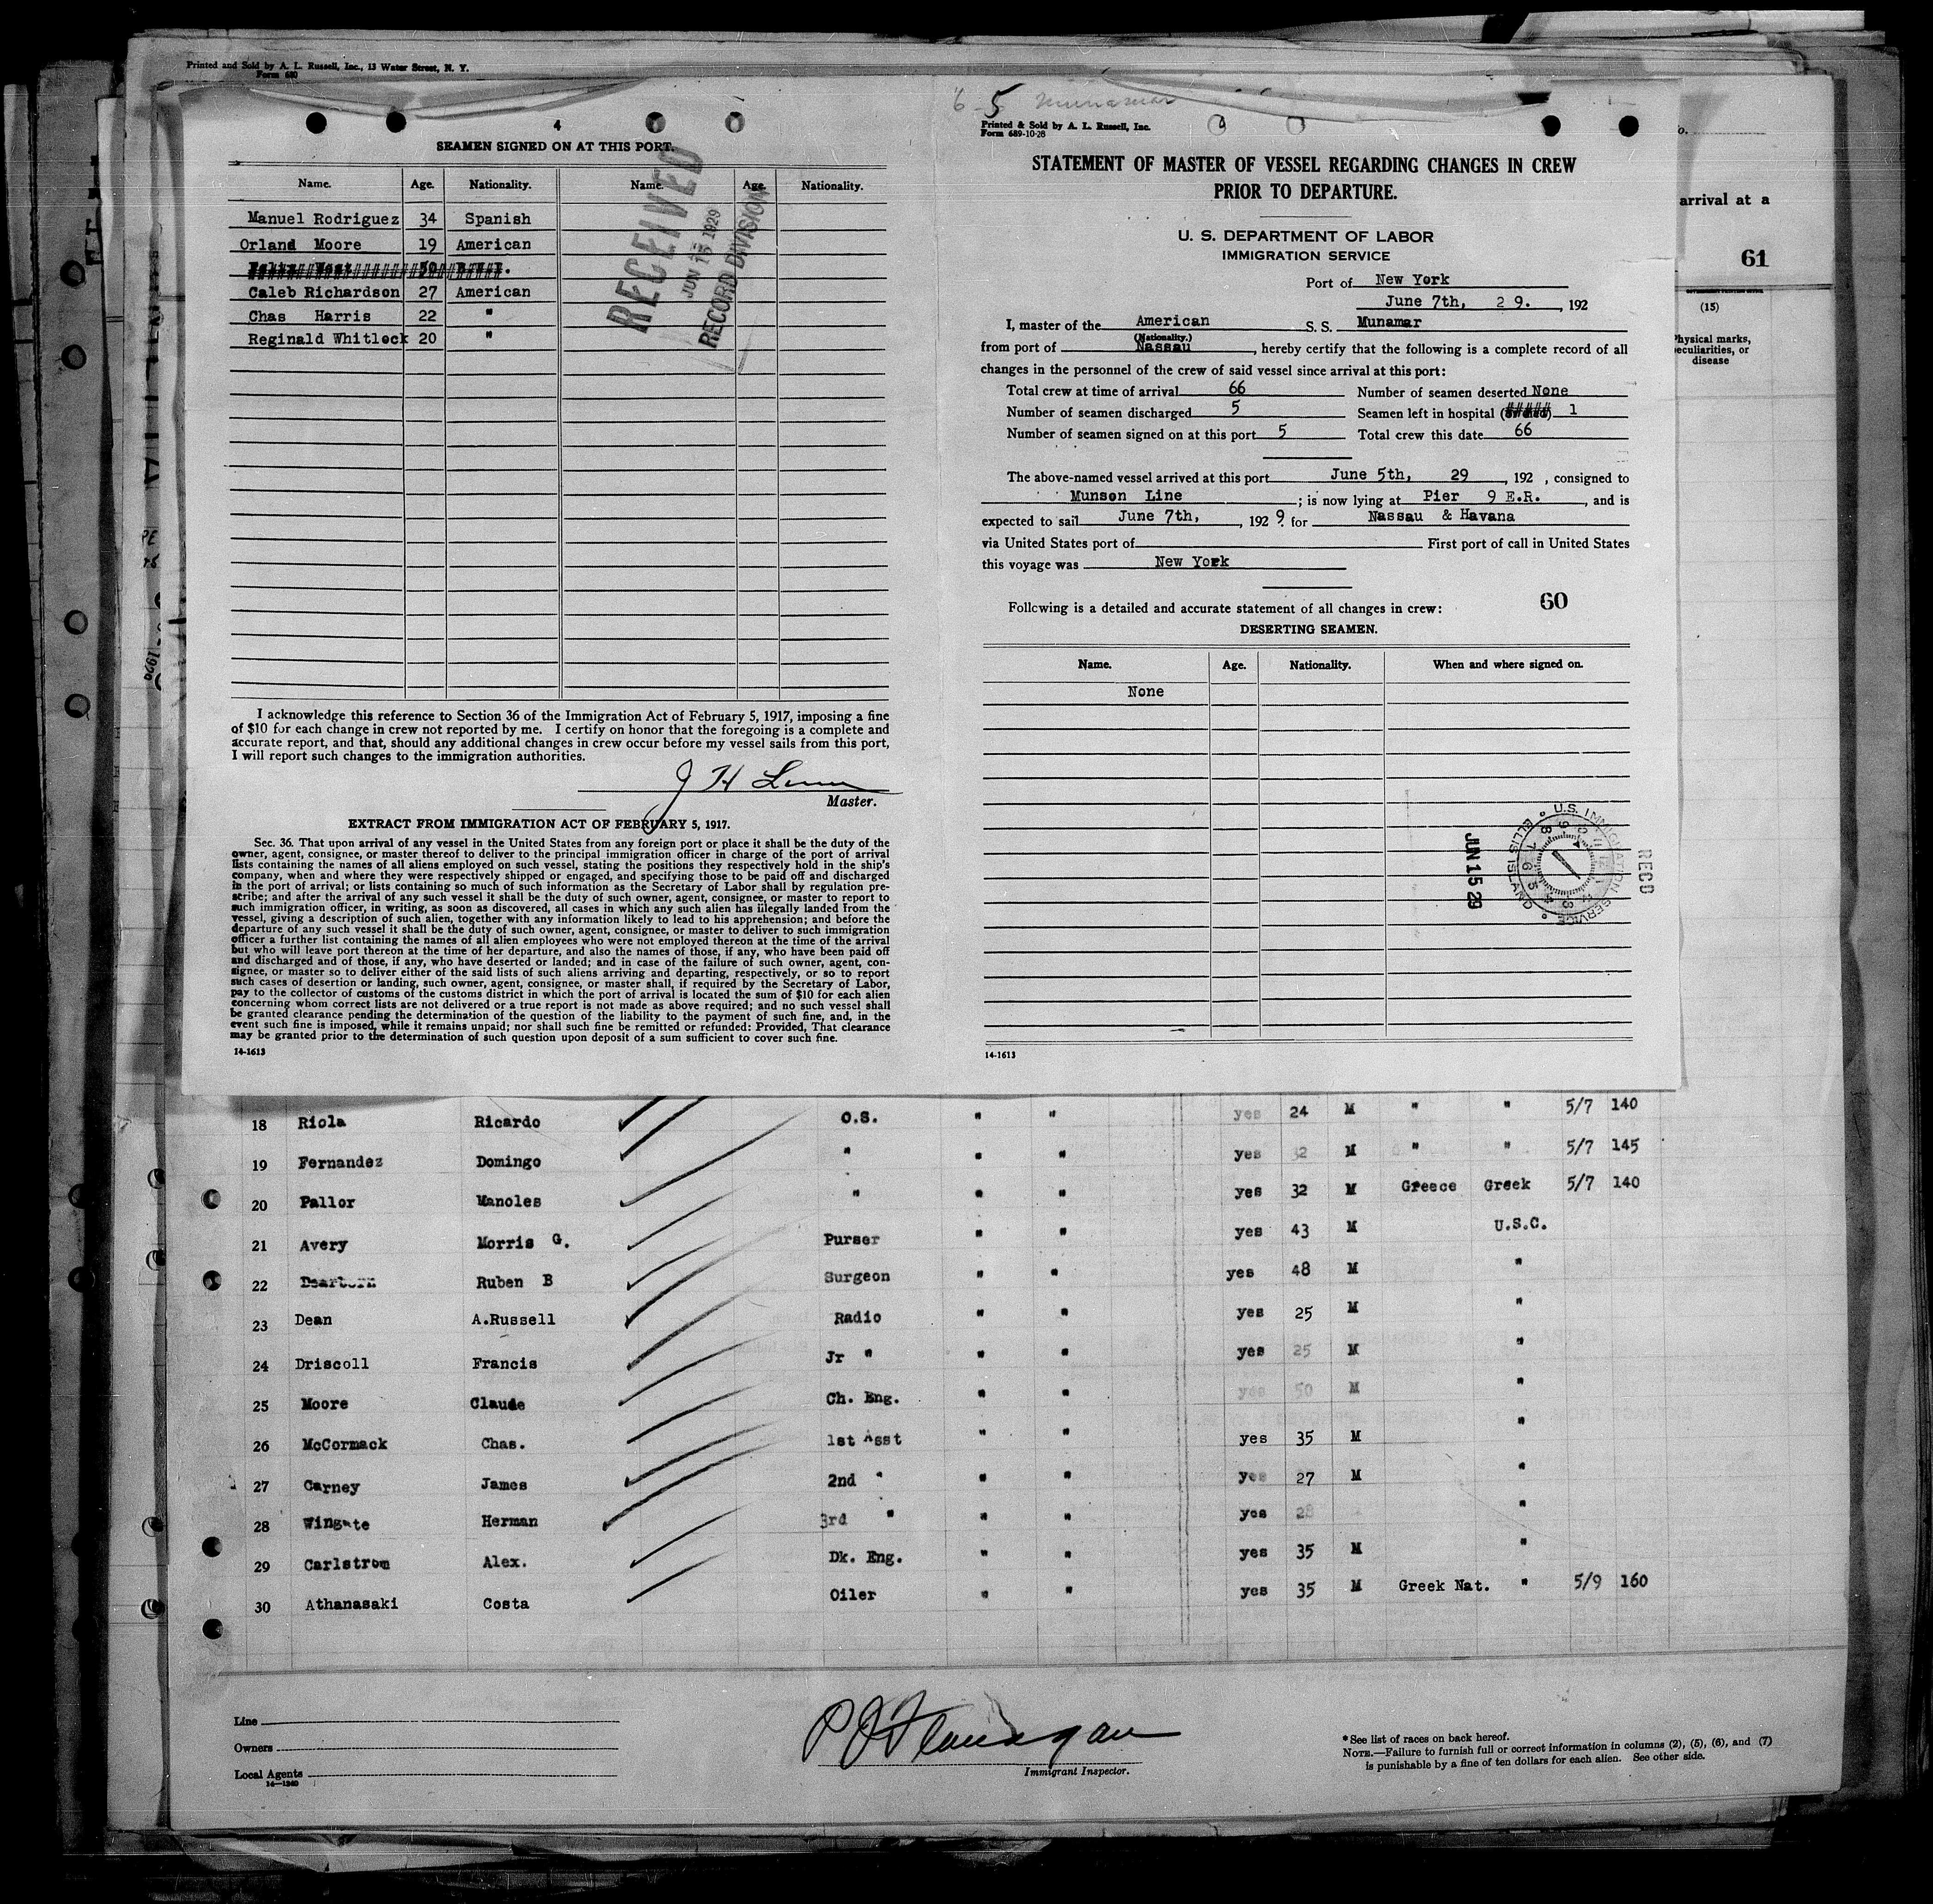 Printed and Sold by A. L. Russell, Inc., 13 Water Street, N. Y.
Form 680
4
SEAMEN SIGNED ON AT THIS PORT.
Name. Age. Nationality. Name. Age. Nationality.
Manuel Rodriguez 34 Spanish
Orland Moore 19 American
Caleb Richardson 27 American
Chas Harris 22 "
Reginald Whitlock 20 "
RECEIVED
JUN 15 1929
RECORD DIVISION
I acknowledge this reference to Section 36 of the Immigration Act of February 5, 1917, imposing a fine
of $10 for each change in crew not reported by me. I certify on honor that the foregoing is a complete and
accurate report, and that, should any additional changes in crew occur before my vessel sails from this port,
I will report such changes to the immigration authorities.
J H
Master.
EXTRACT FROM IMMIGRATION ACT OF FEBRUARY 5, 1917.
Sec. 36. That upon arrival of any vessel in the United States from any foreign port or place it shall be the duty of the
owner, agent, consignee, or master thereof to deliver to the principal immigration officer in charge of the port of arrival
lists containing the names of all aliens employed on such vessel, stating the positions they respectively hold in the ship's
company, when and where they were respectively shipped or engaged, and specifying those to be paid off and discharged
in the port of arrival; or lists containing so much of such information as the Secretary of Labor shall by regulation pre-
scribe; and after the arrival of any such vessel it shall be the duty of such owner, agent, consignee, or master to report to
such immigration officer, in writing, as soon as discovered, all cases in which any such alien has illegally landed from the
vessel, giving a description of such alien, together with any information likely to lead to his apprehension; and before the
departure of any such vessel it shall be the duty of such owner, agent, consignee, or master to deliver to such immigration
officer a further list containing the names of all alien employees who were not employed thereon at the time of the arrival
but who will leave port thereon at the time of her departure, and also the names of those, if any, who have been paid off
and discharged and of those, if any, who have deserted or landed; and in case of the failure of such owner, agent, con-
signee, or master so to deliver either of the said lists of such aliens arriving and departing, respectively, or so to report
such cases of desertion or landing, such owner, agent, consignee, or master shall, if required by the Secretary of Labor,
pay to the collector of customs of the customs district in which the port of arrival is located the sum of $10 for each alien
concerning whom correct lists are not delivered or a true report is not made as above required; and no such vessel shall
be granted clearance pending the determination of the question of the liability to the payment of such fine, and, in the
event such fine is imposed, while it remains unpaid; nor shall such fine be remitted or refunded: Provided, That clearance
may be granted prior to the determination of such question upon deposit of a sum sufficient to cover such fine.
14-1613
6 5 Munamar
Printed & Sold by A. L. Russell, Inc.
Form 689-10-28
STATEMENT OF MASTER OF VESSEL REGARDING CHANGES IN CREW
PRIOR TO DEPARTURE.
U. S. DEPARTMENT OF LABOR
IMMIGRATION SERVICE
Port of New York
June 7th, 29. , 192
I, master of the American S. S. Munamar
(Nationality.)
from port of Nassau , hereby certify that the following is a complete record of all
changes in the personnel of the crew of said vessel since arrival at this port:
Total crew at time of arrival 66 Number of seamen deserted None
Number of seamen discharged 5 Seamen left in hospital 1
Number of seamen signed on at this port 5 Total crew this date 66
The above-named vessel arrived at this port June 5th, 29 , 192 , consigned to
Munson Line ; is now lying at Pier 9 E.R. , and is
expected to sail June 7th, , 192 9. for Nassau & Havana
via United States port of First port of call in United States
this voyage was New York
60
Following is a detailed and accurate statement of all changes in crew:
DESERTING SEAMEN.
Name. Age. Nationality. When and where signed on.
None
U.S. IMMIGRATION SERVICE ELLIS ISLAND
RECD
JUN 15 29
14-1613
o.
arrival at a
61
(15)
Physical marks,
peculiarities, or
disease
18 Riola Ricardo O.S. " " yes 24 M " " 5/7 140
19 Fernandez Domingo " " " yes 32 M " " 5/7 145
20 Pallor Manoles " " " yes 32 M Greece Greek 5/7 140
21 Avery Morris G. Purser " " yes 43 M U.S.C.
22 Dearborn Ruben B Surgeon " " yes 48 M "
23 Dean A.Russell Radio " " yes 25 M "
24 Driscoll Francis Jr " " " yes 25 M "
25 Moore Claude Ch. Eng. " " yes 50 M "
26 McCormack Chas. 1st Asst " " yes 35 M "
27 Carney James 2nd " " " yes 27 M "
28 Wingate Herman 3rd " " " yes 28 "
29 Carlstrom Alex. Dk. Eng. " " yes 35 M "
30 Athanasaki Costa Oiler " " yes 35 M Greek Nat. " 5/9 160
Line
Owners
Local Agents
14-1240
P J Flanagan
Immigrant Inspector.
* See list of races on back hereof.
NOTE.—Failure to furnish full or correct information in columns (2), (5), (6), and (7)
is punishable by a fine of ten dollars for each alien. See other side.